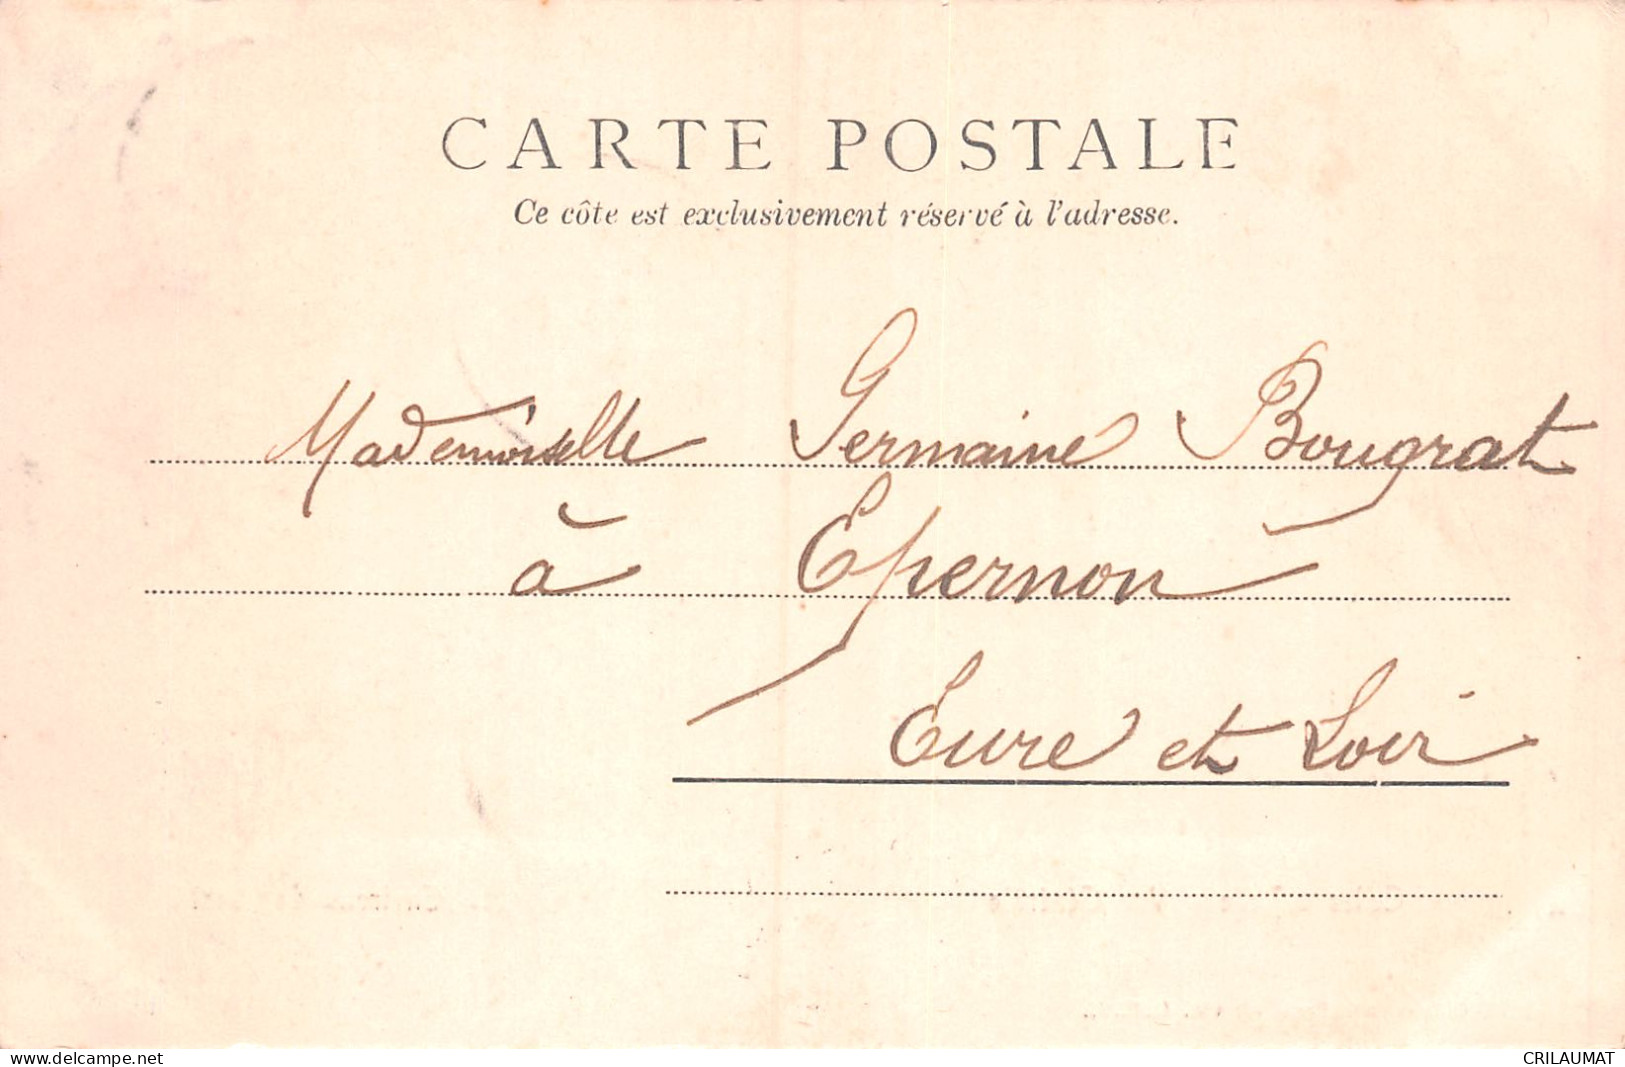 CARTE POSTALE
Ce côte est exclusivement réservé à l'adresse.
Mademoiselle Germaine Bougrat
à Epernon
Eure et Loir
www.delcampe.net
CRILAUMAT